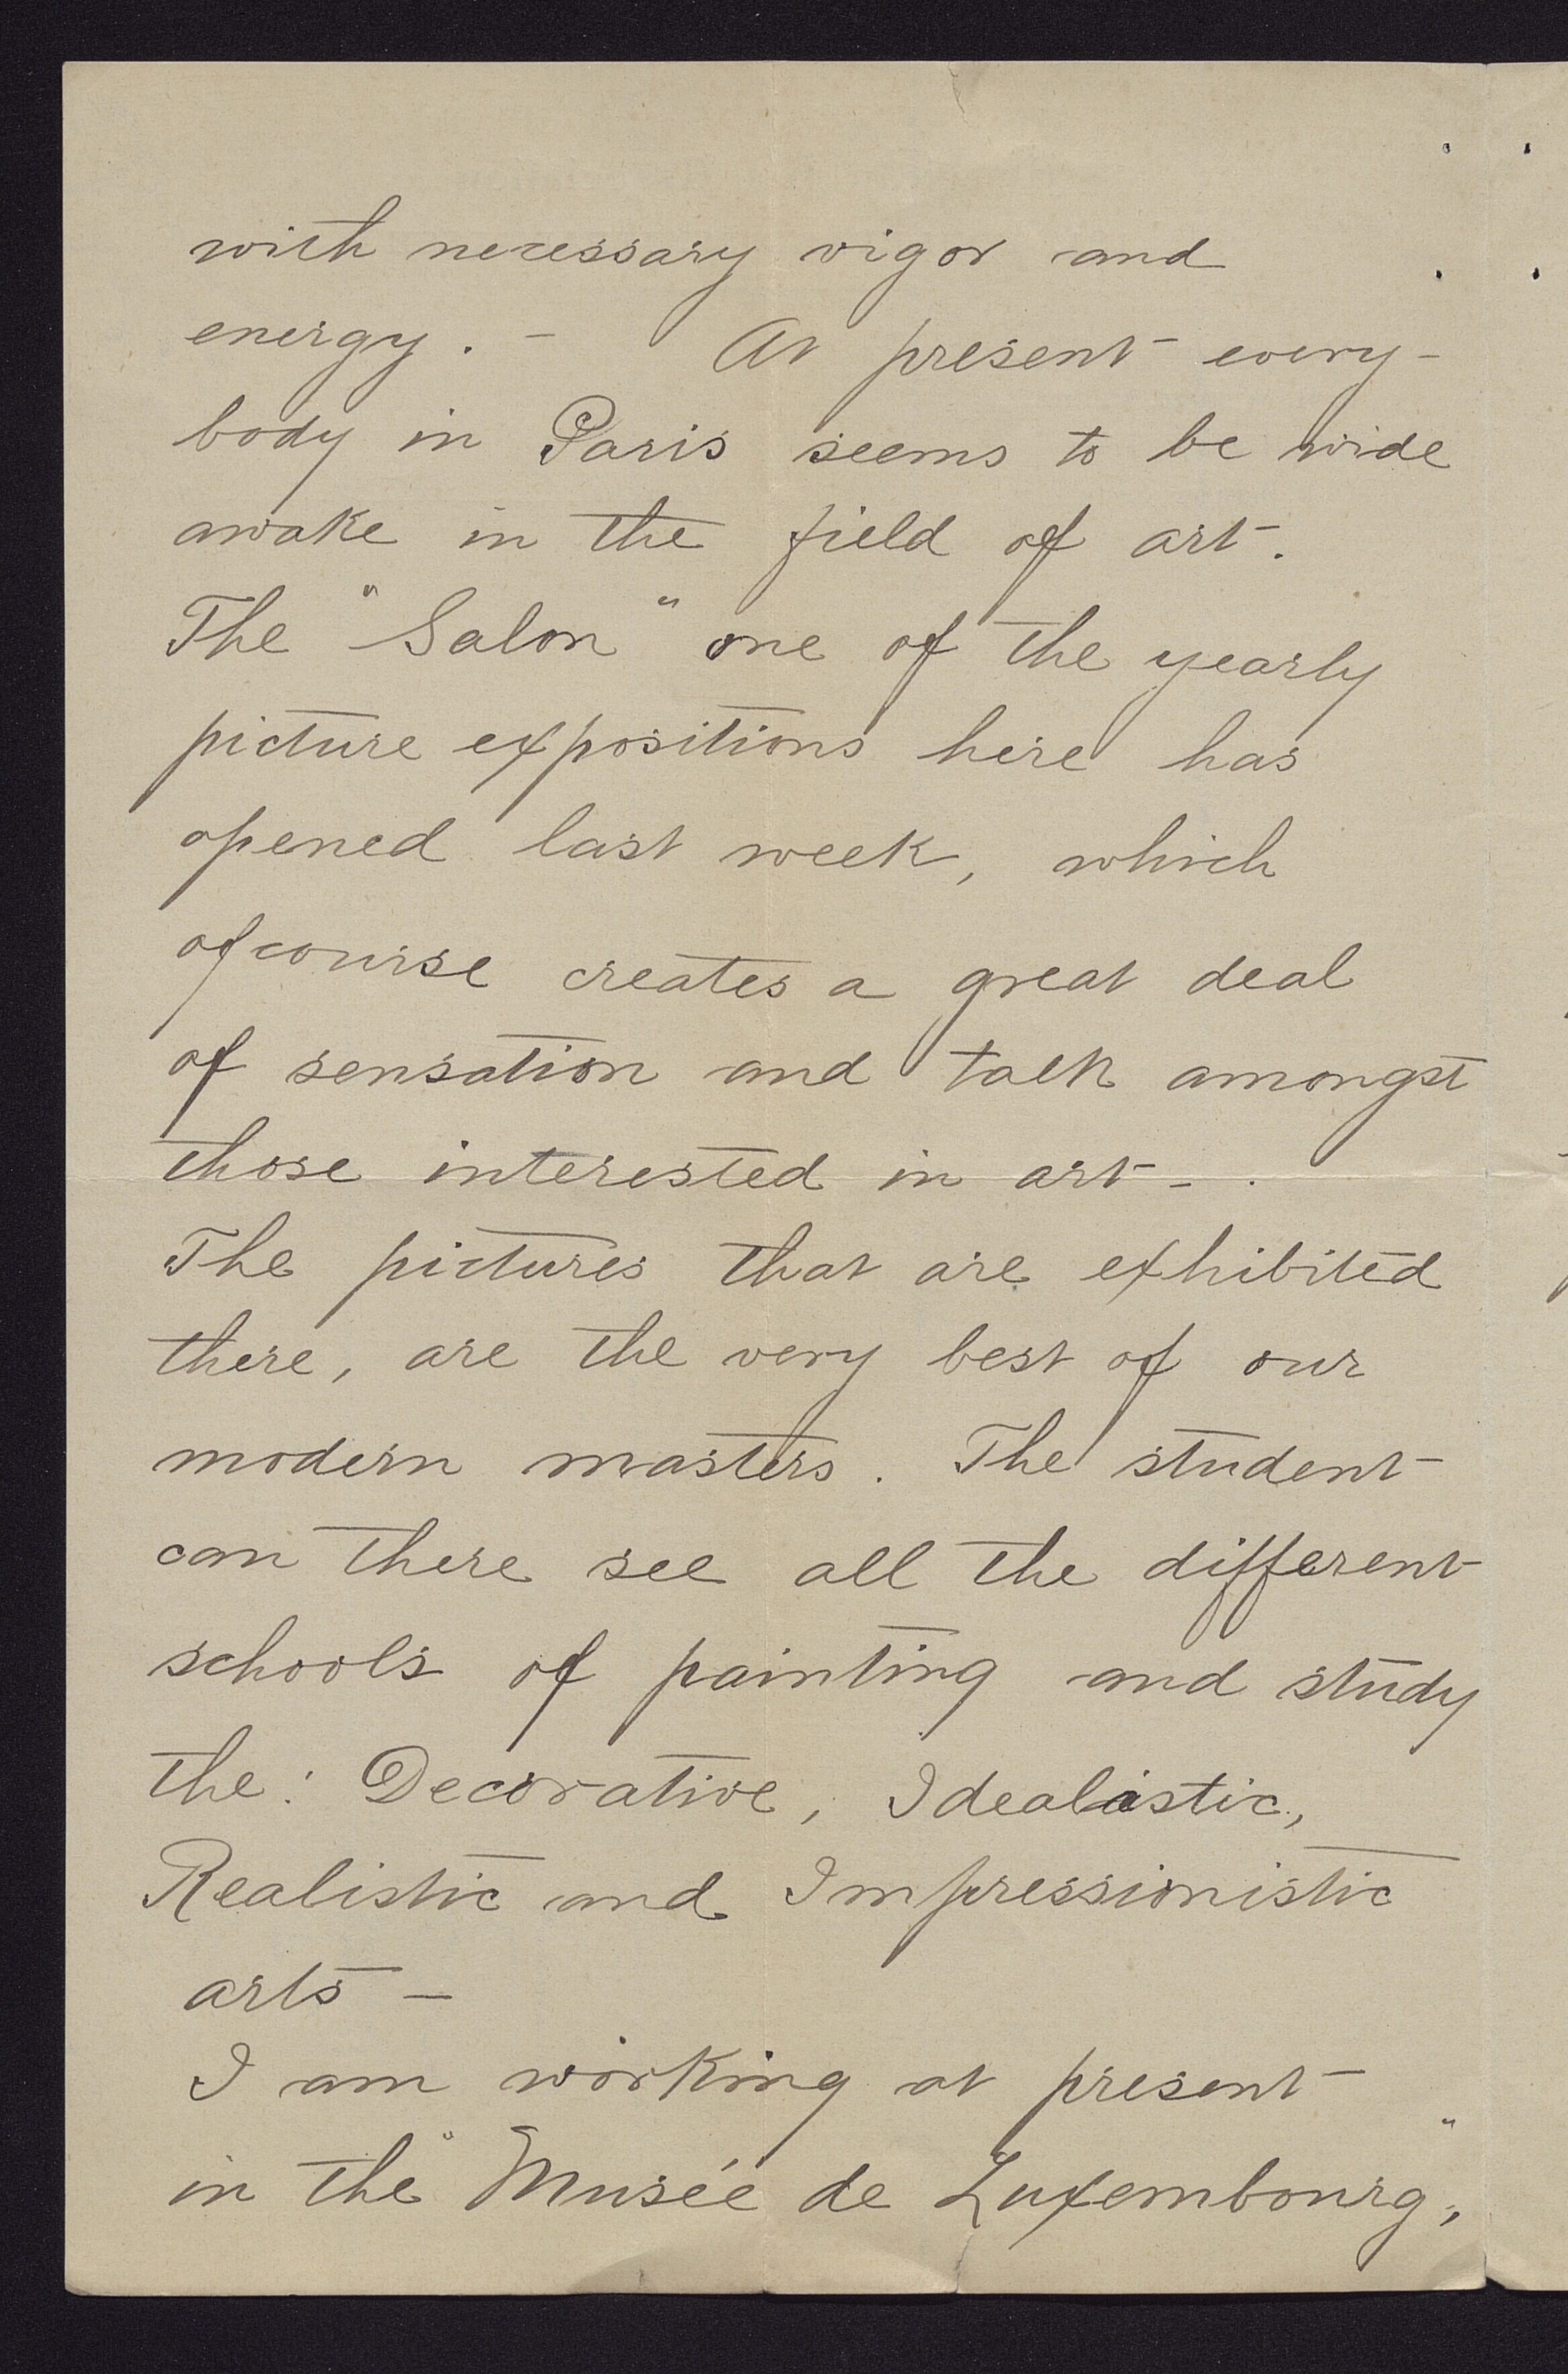 with necessary vigor and
energy. - At present every-
body in Paris seems to be wide
awake in the field of art.
The "Salon" one of the yearly
picture expositions here has
opened last week, which
ofcourse creates a great deal
of sensation and talk amongst
those interested in art - .
The pictures that are exhibited
there, are the very best of our
modern masters. The student
can there see all the different
schools of painting and study
the: Decorative, Idealistic,
Realistic and Impressionistic
arts -
I am working at present
in the "Musée de Luxembourg",